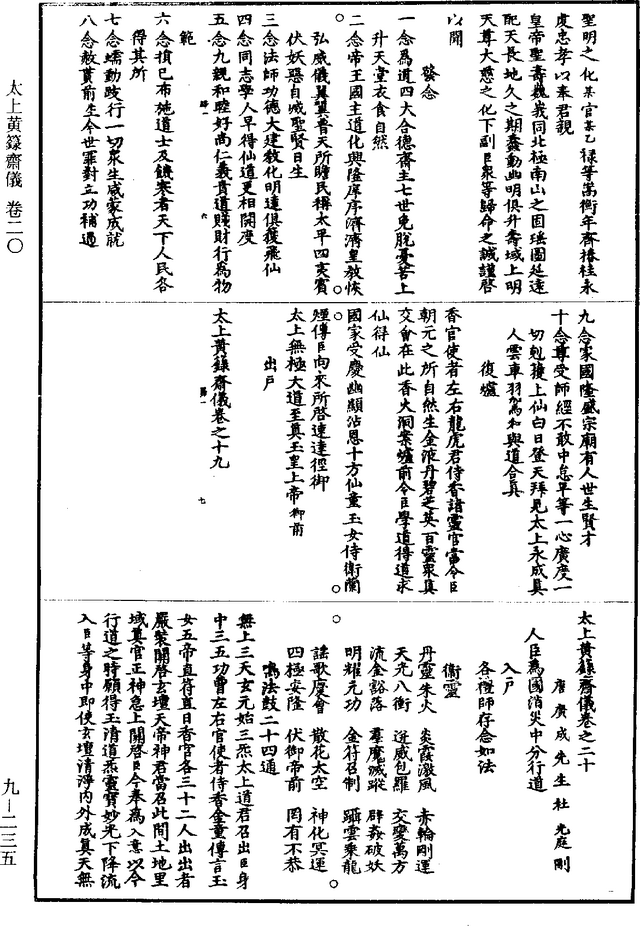 聖明之化某官某乙祿等嵩衡年齊椿桂永
虔忠孝以奉君親
皇帝聖壽巍峩同北極南山之固瑤圖延遠
配天長地久之期蠢動幽明俱升壽域上明
天尊大慈之化下副臣衆等歸命之誠謹啓
以聞
發念
一念為道四大合德齋主七世免脫憂苦上
升天堂衣食自然
二念帝王國主道化興隆庠序濟濟皇教恢
弘威儀翼翼普天所瞻民稱太平四夷賓
伏妖惡自滅聖賢日生
三念法師功德大建教化明達俱獲飛仙
四念同志學人早得仙道更相開度
五念九親和睦好尚仁義貴道賤財行為物
範
六念損己布施道士及饑寒者天下人民各
得其所
七念蠕動跂行一切衆生咸蒙成就
八念赦貰前生今世罪對立功補過
太上黃籙齋儀 卷二〇
九念家國隆盛宗廟有人世生賢才
十念尊受師經不敢中怠早等一心廣度一
切剋獲上仙白日登天拜見太上永成真
人雲車羽駕和與道合真
復爐
香官使者左右龍虎君侍香諸靈官當令臣
朝元之所自然生金液丹碧芝英百靈衆真
交會在此香火洞案爐前令臣學道得道求
仙得仙
國家受慶幽顯沾恩十方仙童玉女侍衛蘭
煙傳臣向來所啓速達徑御
太上無極大道至真玉皇上帝御前
出戶
太上黃籙齋儀卷之十九
太上黃籙齋儀卷之二十
唐廣成先生杜光庭刪
人臣為國消災中分行道
入戶
各禮師存念如法
衛靈
丹靈朱火 炎霞激風 赤輪剛運
天光八衝 迸威包羅 交變萬方
流金豁落 羣魔滅蹤 辟姦破妖
明耀元功 金符召制 躡雲乘龍
謠歌慶會 散花太空 神化冥運
四極安隆 伏御帝前 罔有不恭
鳴法鼓二十四通
無上三天玄元始三炁太上道君召出臣身
中三五功曹左右官使者侍香金童傳言玉
女五帝直符直日香官各三十二人出出者
嚴裝開啓玄壇天帝神君當召此間土地里
域真官正神急上關啓臣今奉為入意以今
行道之時願得玉清道炁靈寶妙光下降流
入臣等身中即使玄壇清淨內外成真天無
九—二三五